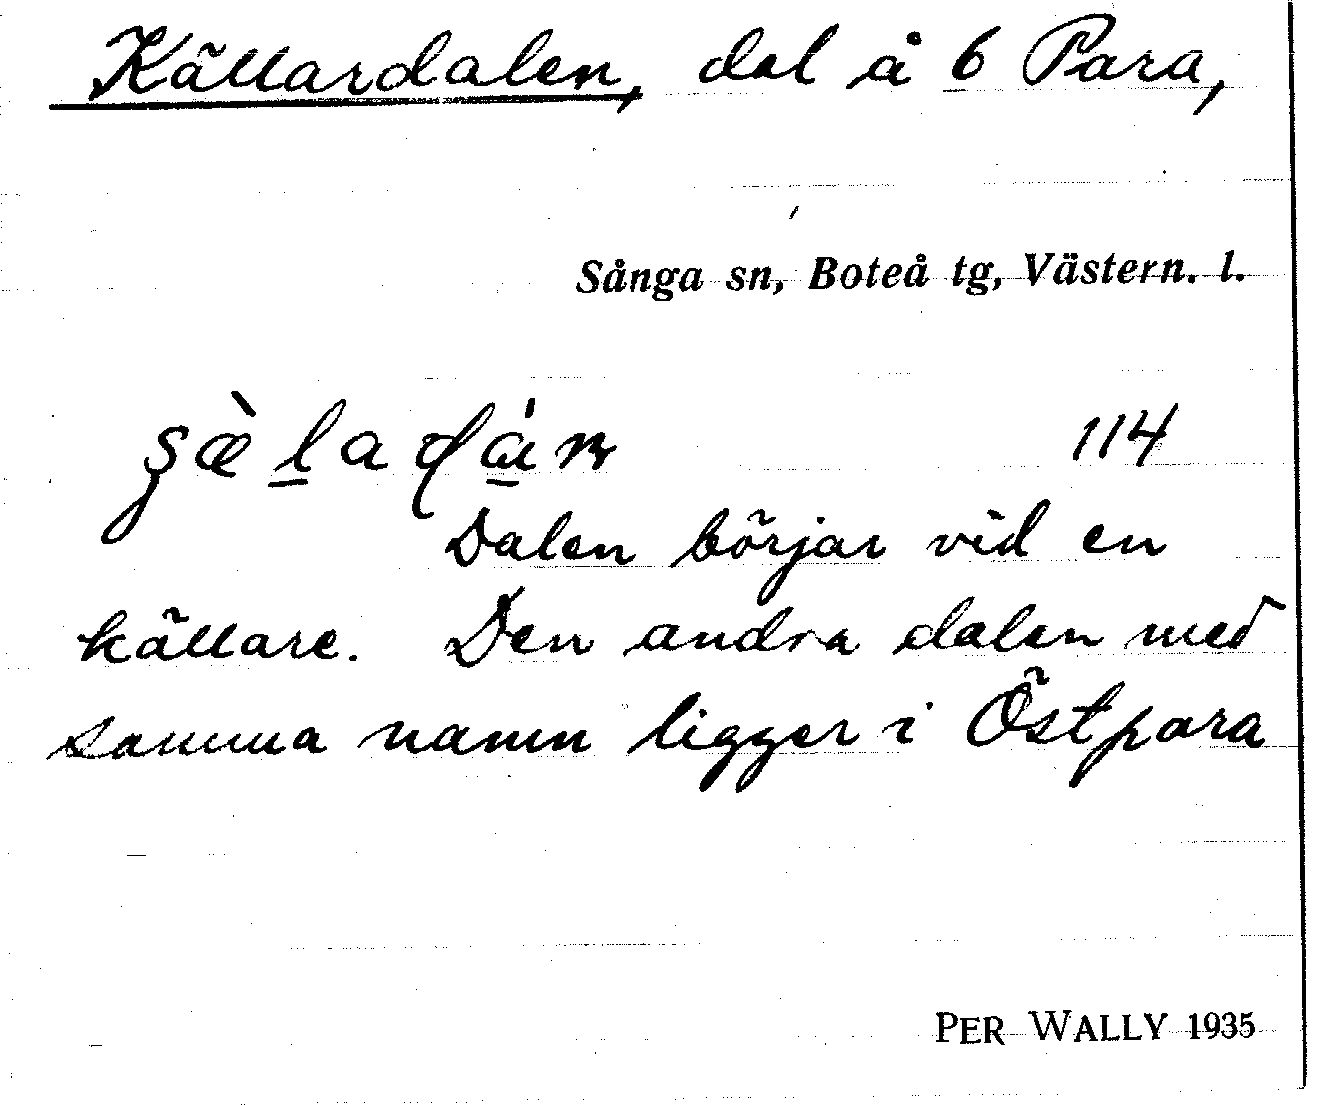 Källardalen, dal å 6 Para,
Sånga sn, Boteå tg, Västern. l.
114
Dalen börjar vid en
källare. Den andra dalen med
samma namn ligger i Östpara
PER WALLY 1935